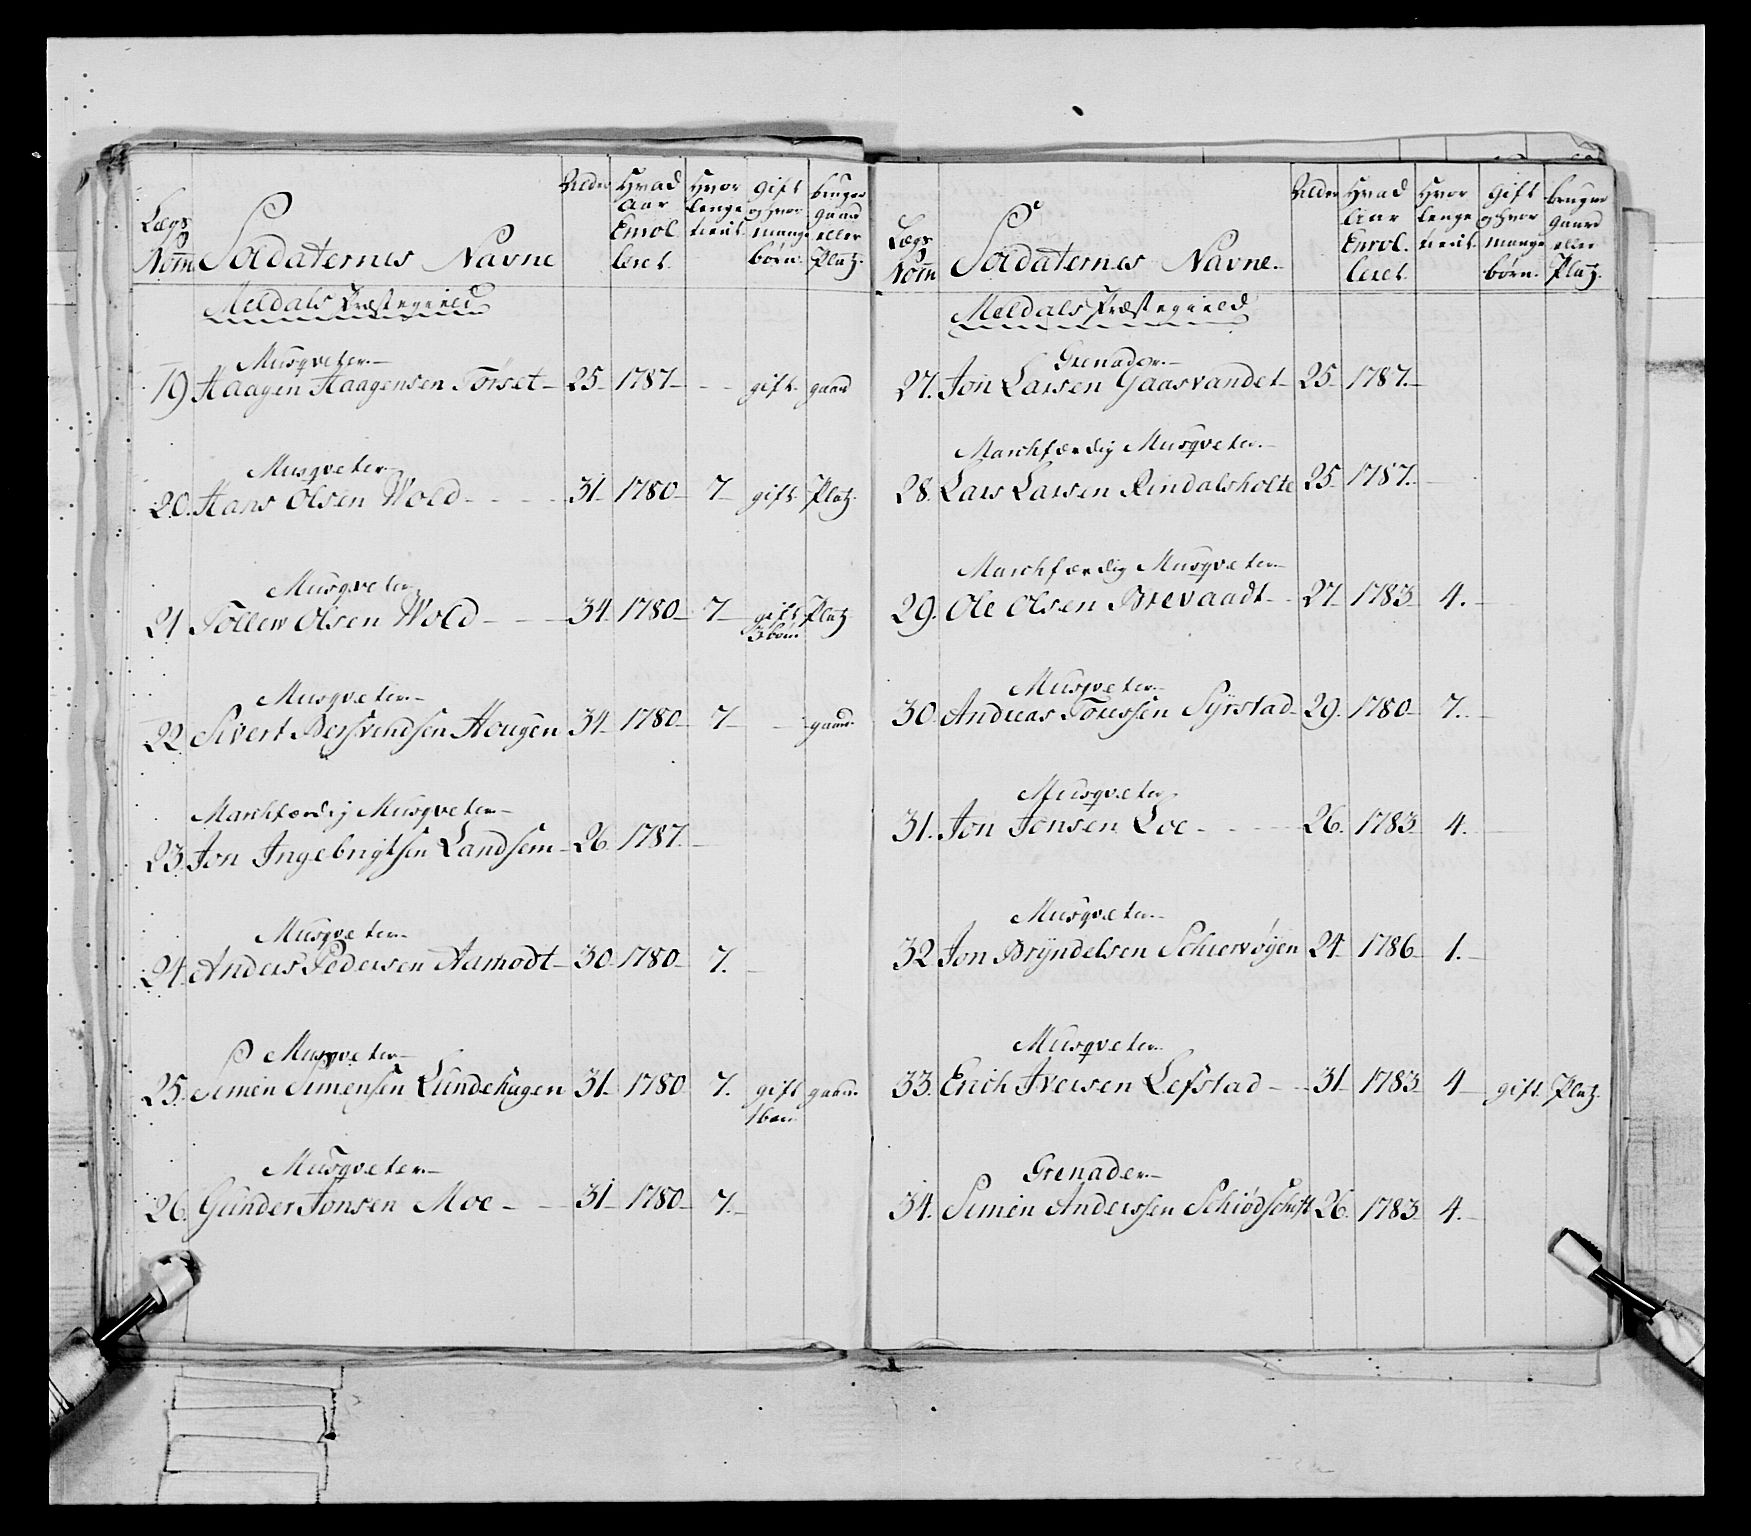 Lægs Nom̄ Soldaternes Navne Alder Hvad Aar Enrolleret Hvor lenge tient gift og hvor mange børn bruger gaard eller Platz.
Meldals Præstegield
Musqveter
19 Haagen Haagensen Torset 25 1787 - - gift gaard
Musqveter
20. Hans Olsen Wold - - - 31 1780 7 gift Platz.
Musqveter
21 Tollew Olsen Wold - - - 34 1780 7 gift Platz.
3 børn
Musqveter
22 Sivert Bersvendsen Hougen 34 1780 7 - gaard
Marchfærdig Musqveter
23. Jon Ingebrigtsen Landsem 26 1787.
Musqveter
24. Anders Pedersen Aamodt 30 1780 7.
Musqveter
25. Simen Simensen Lundehagen 31 1780 7. gift gaard
1 barn
Musqveter
26. Gunder Jonsen Moe - - 31 1780 7.
Lægs Nom̄ Soldaternes Navne Alder Hvad Aar Enrolleret Hvor lenge tient gift og hvor mange børn. bruger gaard eller Platz.
Meldals Præstegield
Grenader
27. Jon Larsen Gaasvandet 25 1787.
Marchfærdig Musqveter
28. Lars Larsen Rindalsholte 25 1787.
Marchfærdig Musqveter
29. Ole Olsen Brevaadt 27 1783 4.
Musqveter
30. Andreas Toressen Syrstad 29. 1780 7.
Musqveter
31. Jon Jonsen Loe - - - 26. 1783 4.
Musqveter
32 Jon Bryndelsen Schiervøyen 24 1786 1.
Musqveter
33. Erich Iversen Lefstad - - 31 1783 4 gift Platz.
Grenader
34. Simen Anderssen Schiødschift 26. 1783 4.